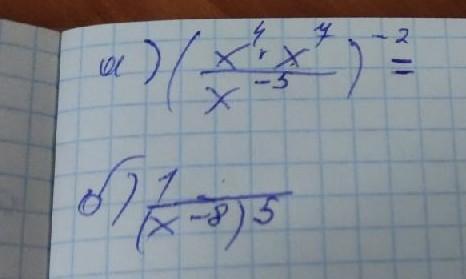 а) (x⁴ · x⁷ / x⁻⁵)⁻² =
б) 1 / (x⁻⁸)⁵